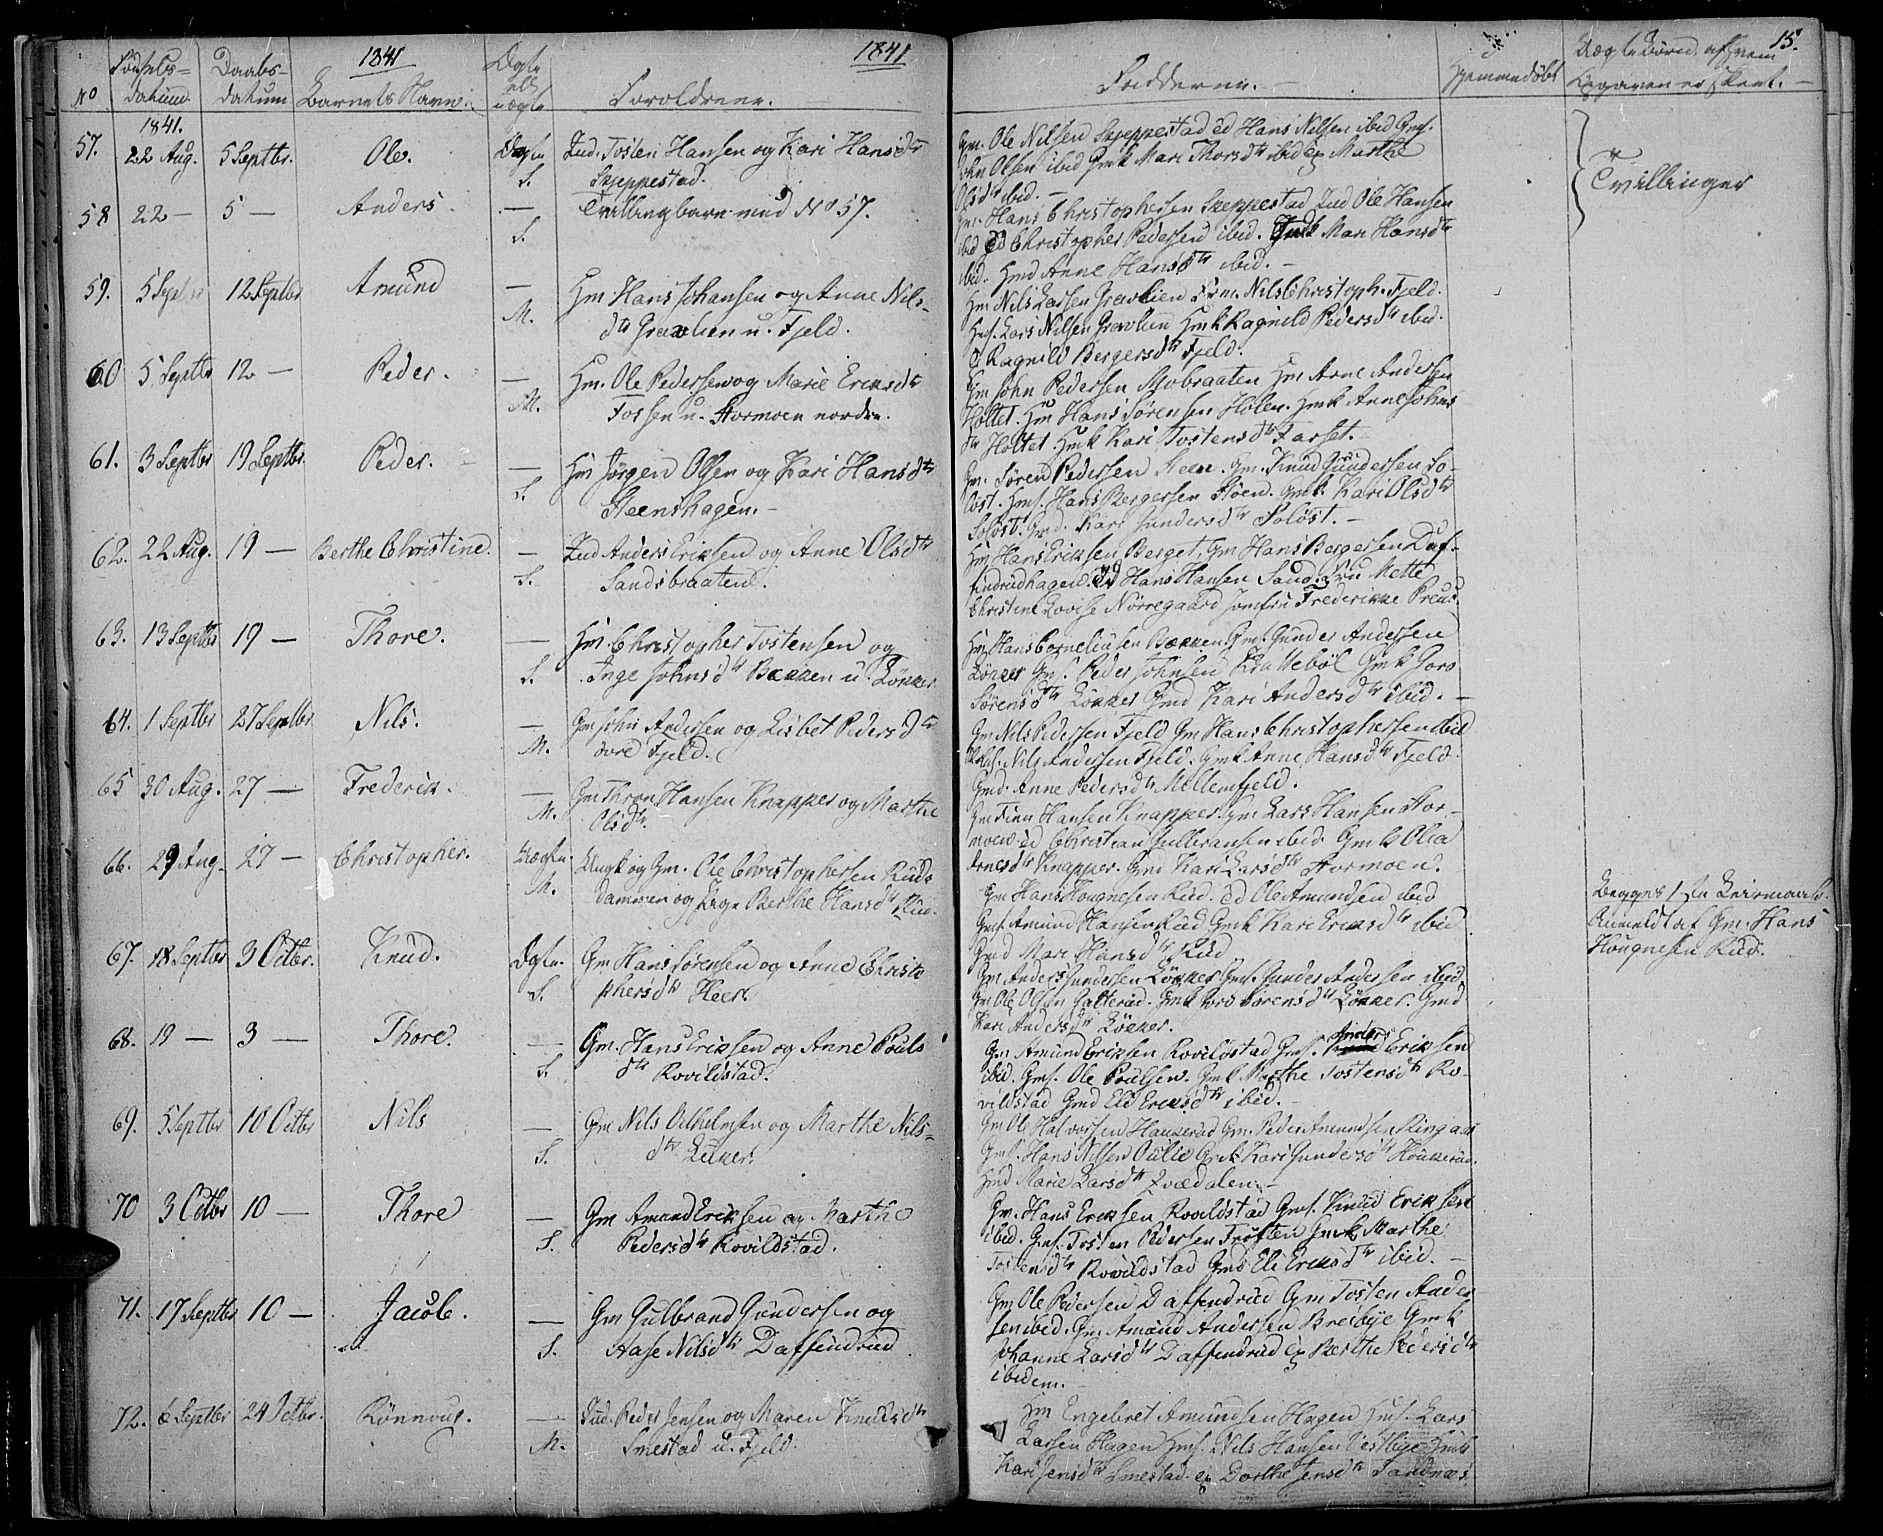 1841
1841
15.
No
Fødsels-
datum.
Daabs-
datum
Barnets Navn.
Ægte
ell.
uægte
Forældrene.
Fadderne.
Hjemmedøbt
Uægte Børn, af hvem
Opgaven er skeet.
1841.
57. 22 Aug. 5 Septbr. Ole. Ægte Ind. Tosten Hansen og Kari Hansdtr
S. Skjeppestad.
Gm. Ole Nilsen Skjeppestad Hans Nilsen ibid Gmf.
John Olsen ibid Gmk Mari Thorsdtr ibid Marthe
Olsdtr ibid.
Tvillinger
58 22 — 5 — Anders. — Tvillingbarn med No 57.
S.
Gm. Hans Christophersen Skeppestad Ind Ole Hansen
ibid Christopher Pedersen ibid. Gmk Mari Hansdtr
ibid. Gmd Anne Hansdtr ibid.
59. 5 Septbr 12 Septbr Amund — Hm. Hans Johansen og Anne Nils-
M. dtr Gravlien u. Fjeld.
Hm Nils Larsen Gravlien Gm. Nils Christoph. Fjeld.
Hmf. Lars Nilsen Gravlien Hmk Ragnild Pedersdtr ibid.
Ragnild Bergersdtr Fjeld.
60 5 Septbr 12 — Peder. — Hm. Ole Pedersen og Marie Eriksdtr
M. Fossen u. Stormoen nordre.
Hm John Pedersen Mobraaten Hm Arne Andersen
Holtet. Hm Hans Sørensen Holen. Hmk Anne Johns
dtr Holtet. Hmk Kari Tostensdtr Farset.
61. 3 Septbr 19 Septbr Peder. — Hm Jørgen Olsen og Kari Hansdtr
S. Steenshagen.
Gm. Søren Pedersen Steen. Gm. Knud Gundersen So-
löst. Hmf. Hans Bergersen Støen. Gmk. Kari Olsdtr
Solöst. Gmd. Kari Gundersdtr Solöst.
62. 22 Aug. 19 — Berthe Christine. — Ind Anders Eriksen og Anne Olsdtr
S. Sandsbraaten.
Hm Hans Eriksen Berget, Gm Hans Bergersen Daf-
findrudhagen Hans Hansen Sand Fru Mette
Christine Lovise Nörregaard Jomfru Frederikke Preus.
63. 13 Septbr 19 — Thore. — Hm. Christopher Tostensen og
S. Inge Johnsdtr Bækken u. Løkker
Hm Hans Corneliusen Bækken. Gmf. Gunder Andersen
Løkker Gmf. Peder Johnsen Krattebøl Gmk Goro
Sørensdtr Løkker Gmd Kari Andersdtr ibid.
64. 1 Septbr 27 Septbr. Nils. — Gm John Andersen og Lisbet Pedersdtr
M. øvre Fjeld.
Gm Nils Pedersen Fjeld Gm Hans Christophersen ibid
Gmf. Nils Andersen Fjeld. Gmk Anne Hansdtr Fjeld.
Gmd. Anne Pedersdtr Mellemfjeld.
65 30 Aug. 27 — Frederik. — Gm Thron Hansen Knapper og Marthe
M. Olsdtr.
Gm Finn Hansen Knapper. Gm Lars Hansen Stor-
moen Christian Gulbransen ibid. Gmk Olia
Arnesdtr Knapper. Gmd Kari Larsdtr Stormoen.
66. 29 Aug. 27 — Christopher. Uægte. Ungk og Gm. Ole Christophersen Ruds
M. dammen og Pige Berthe Hansdtr Rud.
Gm Hans Hougnesen Rud. Ole Amundsen ibid
Gmf. Amund Hansen Rud Gmk Kari Eriksdtr ibid
Gmd Mari Hansdtr Rud
Begges 1ste Leiermaal.
Anmeldt af Gm. Hans
Hougnesen Rud.
67. 18 Septbr 3 Octbr. Knud. Ægte. Gm Hans Sørensen og Anne Christo
S. phersdtr Heer.
Gm Anders Gundersen Løkker Gmf. Gunder Andersen ibid
Gm Ole Olsen Galterud. Gmk Goro Sørensdtr Løkker. Gmd
Kari Andersdtr Løkker.
68. 19 — 3 — Thore. — Gm. Hans Eriksen og Anne Pouls
S. dtr Rovildstad.
Gm Amund Eriksen Rovildstad Gmf. Anders Eriksen
ibid. Gmf. Ole Poulsen. Gmk Marthe Tostensdtr Ro-
vildstad Gmd Eli Eriksdtr ibid.
69. 5 Septbr 10 Octbr Nils — Gm Nils Vilhelmsen og Marthe Nils-
S. dtr
Gm Ole Halvorsen Haukerud Gm. Peder Amundsen Ringaas
Gmf. Hans Nilsen Gmk Kari Gundersdtr Houkerud.
Gmd Marie Larsdtr
70 3 Octbr 10 — Thore — Gm Amund Eriksen og Marthe
S. Pedersdtr Rovildstad.
Gm. Hans Eriksen Rovildstad Gmf. Knud Eriksen
ibid. Gmf. Tosten Pedersen Trøften Gmk Marthe
Tostensdtr Rovildstad Gmd Eli Eriksdtr ibid.
71. 17 Septbr 10 — Jacob. — Gm Gulbrand Gundersen og
S. Aase Nilsdtr Daffindrud.
Gm Ole Pedersen Daffendrud Gm Tosten Ander
sen ibid. Gm. Amund Andersen Bresbye Gmk
Johanne Larsdtr Daffendrud Berthe Pedersdtr
ibidem.
72. 6 Septbr 24 Octbr. Rønnoug. — Ind. Peder Jensen og Maren Knudsdtr
M. Smestad u. Fjeld.
Hm Engebret Amundsen Hagen Hmf. Lars
Larsen Hagen Hmf. Nils Hansen Vestbye Hmk
Kari Jensdtr Smestad. Dorthe Jensdtr Sandnæs.